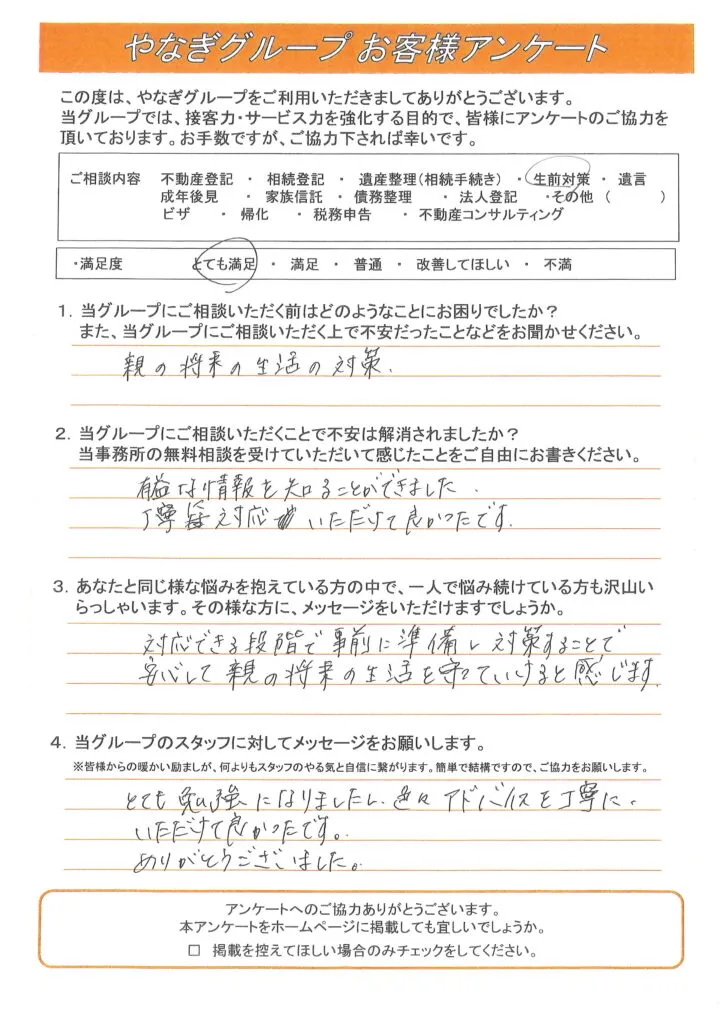 やなぎグループ お客様アンケート
この度は、やなぎグループをご利用いただきましてありがとうございます。
当グループでは、接客力・サービス力を強化する目的で、皆様にアンケートのご協力を
頂いております。お手数ですが、ご協力下されば幸いです。
ご相談内容 不動産登記 ・ 相続登記 ・ 遺産整理(相続手続き) ・ 生前対策 ・ 遺言
成年後見 ・ 家族信託 ・ 債務整理 ・ 法人登記 ・その他 ( )
ビザ ・ 帰化 ・ 税務申告 ・ 不動産コンサルティング
・満足度 とても満足 ・ 満足 ・ 普通 ・ 改善してほしい ・ 不満
1. 当グループにご相談いただく前はどのようなことにお困りでしたか?
また、当グループにご相談いただく上で不安だったことなどをお聞かせください。
親の将来の生活の対策.
2. 当グループにご相談いただくことで不安は解消されましたか?
当事務所の無料相談を受けていただいて感じたことをご自由にお書きください。
有益な情報を知ることができました.
丁寧な対応いただけて良かったです.
3. あなたと同じ様な悩みを抱えている方の中で、一人で悩み続けている方も沢山い
らっしゃいます。その様な方に、メッセージをいただけますでしょうか。
対応できる段階で事前に準備し対策することで
安心して親の将来の生活を守っていけると感じます.
4. 当グループのスタッフに対してメッセージをお願いします。
※皆様からの暖かい励ましが、何よりもスタッフのやる気と自信に繋がります。簡単で結構ですので、ご協力をお願いします。
とても勉強になりましたし、色々アドバイスを丁寧に
いただけて良かったです。
ありがとうございました。
アンケートへのご協力ありがとうございます。
本アンケートをホームページに掲載しても宜しいでしょうか。
□ 掲載を控えてほしい場合のみチェックをしてください。